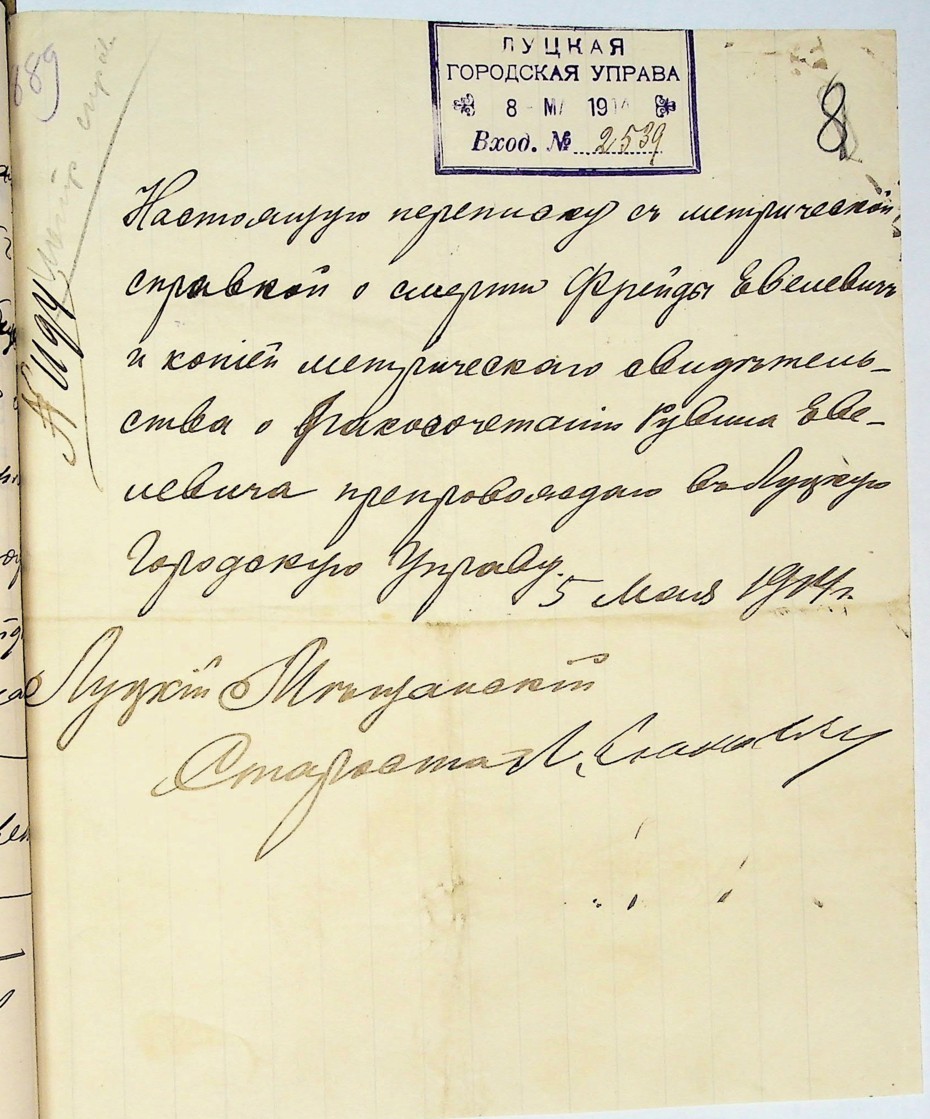 ЛУЦКАЯ
ГОРОДСКАЯ УПРАВА
8 МА 1914
Вход. № 2539
8
Настоящую переписку съ метрической
справкой о смерти Фрейды Евелевичъ
и копіей метрическаго свидѣтель-
ства о бракосочетаніи Рувина Еве-
левича препровождаю въ Луцкую
Городскую Управу.
5 Мая 1914 г.
Луцкій Мѣщанскій
Староста